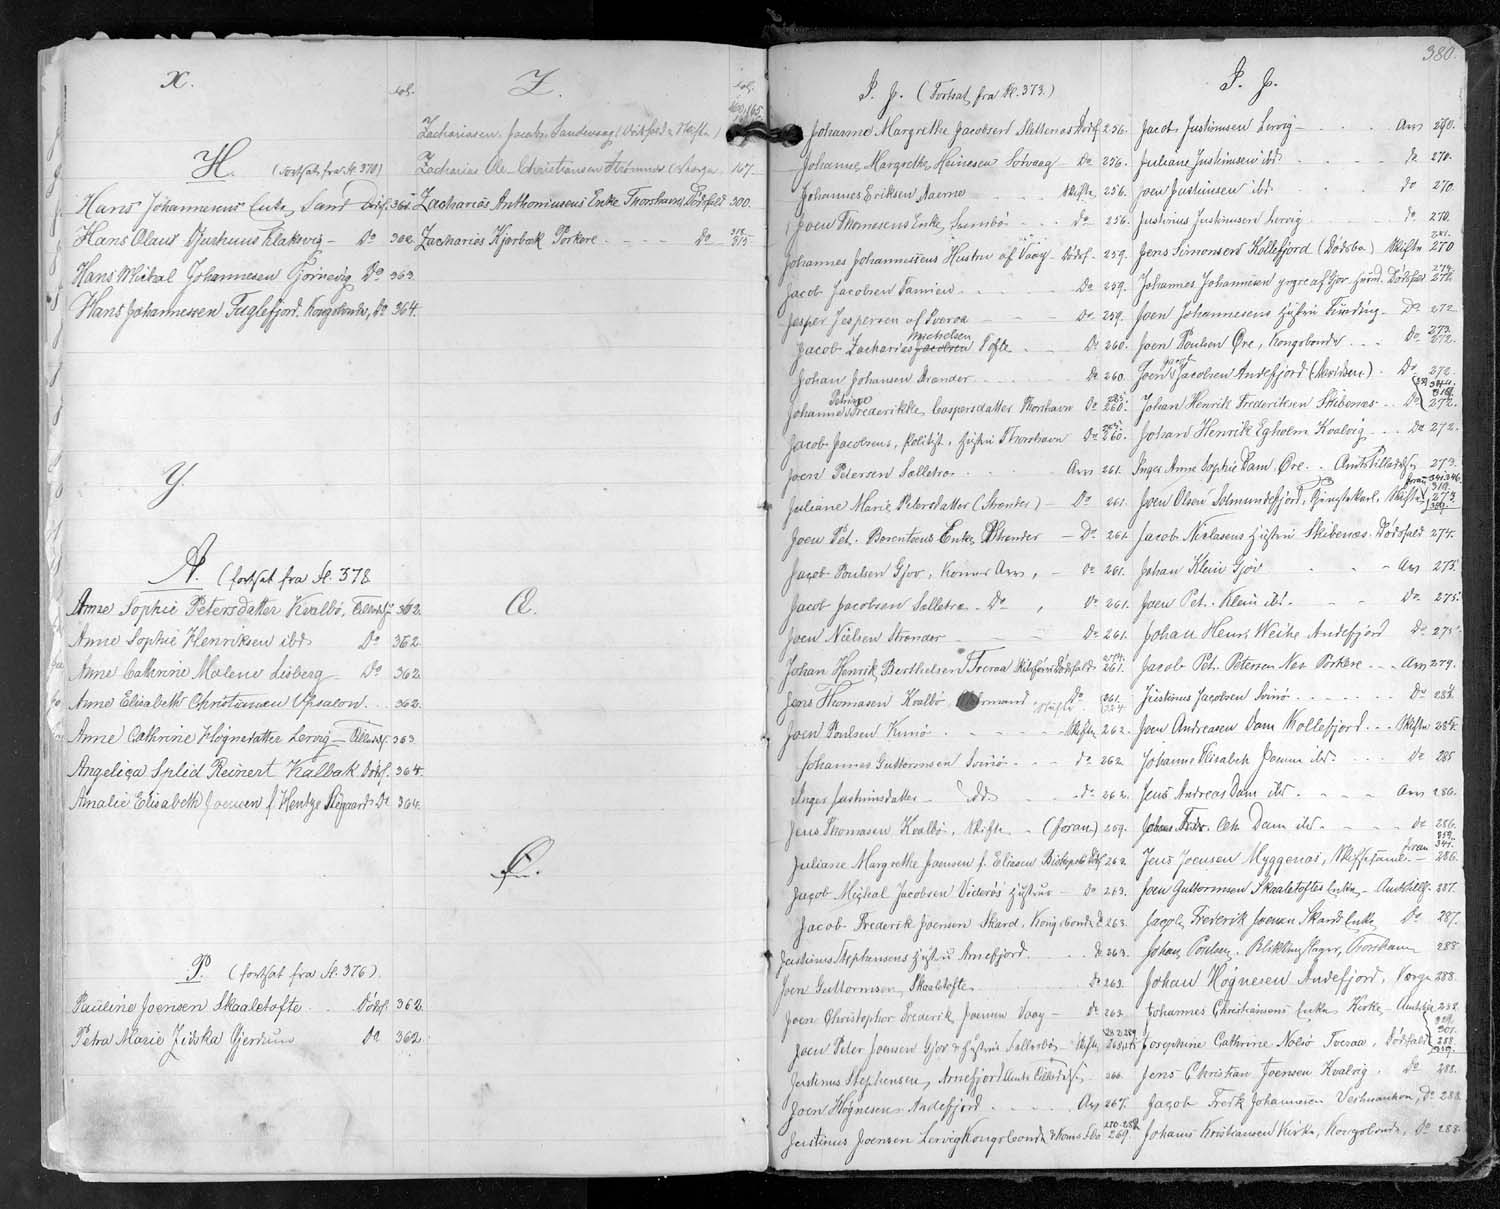 X.
fol.
H. (Fortsat fra fl. 370)
Hans Johannesens Enke, Sand Dødsf. 361
Hans Olaus Djurhuus Klaksvig - Do 362
Hans Michal Johannesen Gjørnevig Do 363
Hans Johannessen Fuglefjord, Kongsbonde, Do 364.
Y.
A. (fortsat fra fl. 378
Anne Sophie Petersdatter Kvalbø, 362.
Anne Sophie Henriksen ibd. Do 362.
Anne Cathrine Malene Lisberg - Do 362
Anne Elisabeth Christiansen Upsalon. 362.
Anne Cathrine Høgnesdatter Lervig - 363
Angelica Splid Reinert Kalbak Dødsf. 364.
Amalie Elisabeth Joensen f. Hentze Do 364.
P. (fortsat fra fl. 376).
Pauline Joensen Skaaletofte Dødsf. 362
Petra Marie Ziska Gjerdum Do 362
Z.
fol.
Zachariasen, Jacob, Sandevaag (Dødsfald & Skifte) 165
Zacharias Ole Christiansen Strømnæs (Værge 167
Zacharias Anthoniusens Enke Thorshavn Dødsfald 300.
Zacharias Kjærbæk Porkere - Do 315
Æ.
Ø.
380.
I. J. (Fortsat fra fl. 373.)
Johanne Margrethe Jacobsen Slettenæs Dødsf. 256.
Johanne Margrethe Heinesen Sørvaag Do 256.
Johannes Eriksen Næsne Skifte 256.
Joen Thomesens Enke, Sumbø - Do 256.
Johannes Johannessens Hustru af Vaag - Dødsf. 259.
Jacob Jacobsen Famien Do 259.
Jesper Jespersen af Tveraa Do 259.
Jacob Zacharias Jacobsen Michelsen Tofte Do 260.
Johan Johansen Strænder Do 260.
Johanne Petrine Frederikke Caspersdatter Thorshavn Do 260.
Jacob Jacobsens, Politibt., Hustru Thorshavn Do 260.
Joen Petersen Selletræ Am 261.
Juliane Marie Petersdatter (Strænder) - Do 261.
Joen Pet. Berentsens Enke, Strænder - Do 261
Jacob Poulsen Gjov, Kone Am, - Do 261.
Jacob Jacobsen Selletræ Do, Do 261.
Joen Nielsen Strænder Do 261.
Johan Henrik Berthelsen Tveraa Dødsfald 261.
Jens Thomasen Kvalbø Formand Do 261
Joen Poulsen Kunø Skifte 262.
Johannes Guttormsen Svinø Do 262
Inger Justinusdatter - ibd Do 262.
Jens Thomasen Kvalbø, Skifte (foran) 259.
Juliane Margrethe Joensen f. Eliasen Dødsf. 263.
Jacob Michal Jacobsen Viderøs Hustrue - Do 263.
Jacob Frederik Joensen Skard, Kongsbonde Do 263.
Justinus Stephansens Hustru Arnefjord Do 263.
Joen Guttormsen, Skaaletofte Do 263.
Joen Christopher Frederik Joensen Vaag - Do 263
Joen Peter Joensen Gjov & Hustru Skifte 265
Justinus Stephensen, Arnefjord 266.
Joen Høgnesen Andefjord Am 267.
Justinus Joensen Lervig Kongsbonde 269.
I. J.
Jacob Justinusen Lervig Am 270.
Juliane Justinusen ibd. Do 270.
Joen Justinusen ibd. Do 270.
Justinus Justinusen Lervig Do 270.
Jens Simonsen Kollefjord (Dødsbo) Skifte 270
Johannes Johannesen yngre af Gjov Dødsfald 272
Joen Johannesens Hustru Funding Do 272
Joen Poulsen Øre, Kongsbonde Do 272.
Joen Jacob Jacobsen Andefjord Do 272.
Johan Henrik Frederiksen Skibenæs Do 272.
Johan Henrik Egholm Kvalvig Do 272.
Inger Anne Sophie Dam Øre. 273.
Joen Olsen Selmundefjord, Skifte 273
Jacob Niclasens Hustru Skibenæs. Dødsfald 274.
Johan Klein Gjov Am 275
Joen Pet. Klein ibd. Do 275.
Johan Henr. Weihe Andefjord Do 275
Jacob Pet. Petersen Næs Porkere Am 279.
Justinus Jacobsen Svinø Do 28
Joen Andreasen Dam Kollefjord Skifte 285.
Johanne Elisabeth Joensen ibd. Do 285
Jens Andreas Dam ibd. Am 286.
Dam ibd. Do 286.
Jens Joensen Myggenæs, 286.
Joen Guttormsen Skaaletoftes Enke 287.
Jacob Frederik Joensen Skards Enke Do 287.
Johan Poulsen, Blikkenslager, Thorshavn 288
Johan Høgnesen Andefjord, Værge 288.
Johannes Christiansens Enke Kirke 288.
Josephine Cathrine Nolsø Tveraa, Dødsfald 288
Jens Christian Joensen Kvalvig. Do 288.
Jacob Fredk Johannesen Vestmanhavn, Do 288
Johans Kristiansen Kirke, Kongsbonde, Do 288.